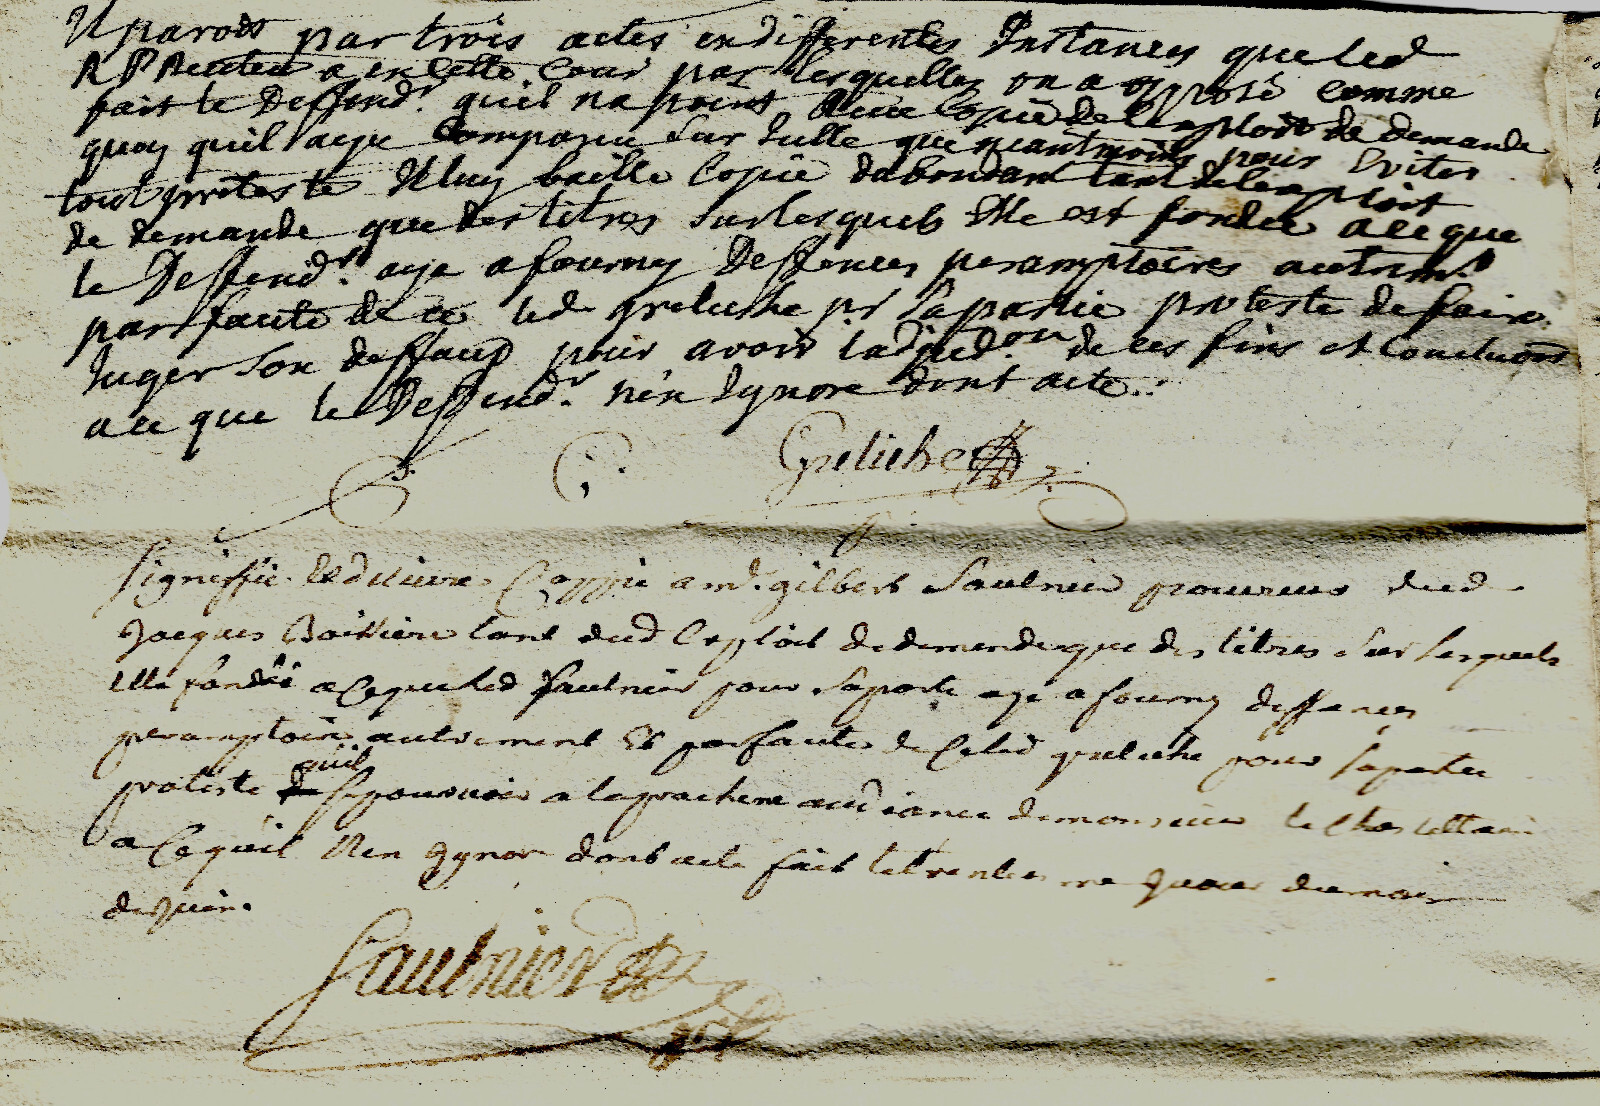 Il parois par trois actes en differentes Instances que led
R P a en cette Cour par lesquelles on a opposé comme
fait le Deffend.r quil na point Copie de lexploit de demande
quoy quil aye Comparu Sur Icelle que neantmoins pour Eviter
tout proteste Il luy baille Copie dabondant tant de lexploit
de demande que des titres Surlesquels Elle est fondée a ce que
le Deffend.r aye a fourny Deffences peramptoires autrem.t
par faute de ce led greliche p.r Sa partie proteste de faire
Juger Son deffaud pour avoir ladjud.on de ces fins et Conclusions
a ce que le Deffend.r n'en Ignore dont acte.
Greliche
Signiffié & delivré Coppie a m.e gilbert Saulnier procureur dud
Jacques tant dud Exploit de demende que des titres Sur Lesquels
Elle fondée a Ceque led Saulnier pour Sa partie aye a fourny deffances
peramptoire autrement & par faute de Ce led greliche pour Sa partie
proteste quil Se pourvoira a la prochene audiance de monsieur le Chastellain
a Ce quil Nen Ignore dont acte fait le trentiesme Jour du mois
de Juin.
Saulnier